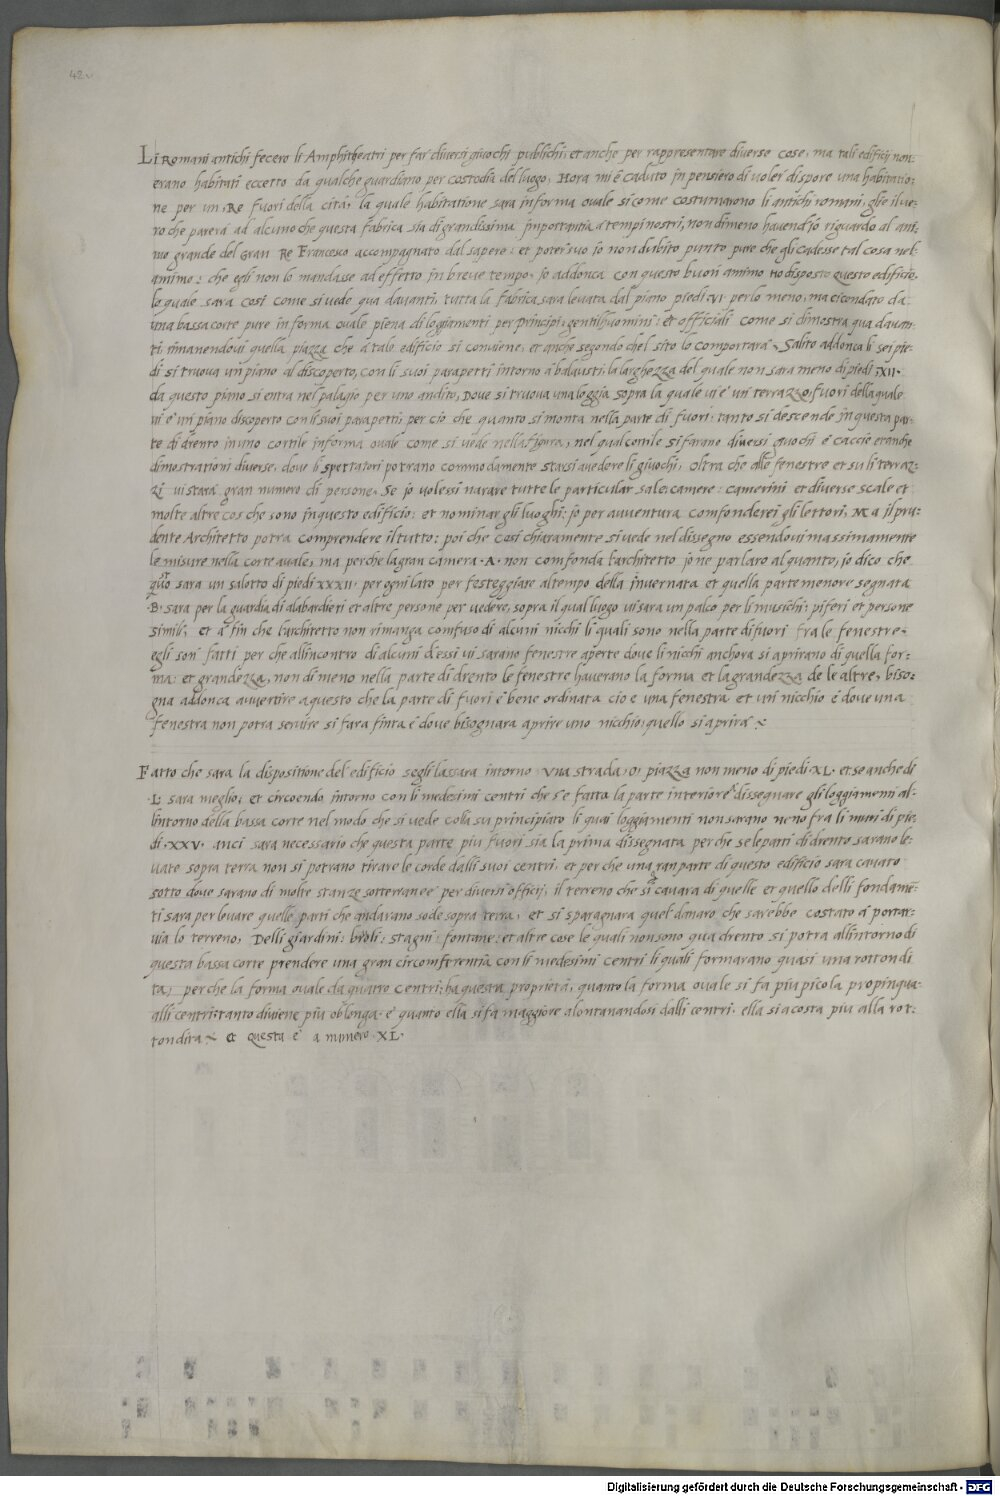 42v
Li Romani antichi fecero li Amphitheatri per far diversi giuochi publichi, et anche per rappresentare diverse cose, ma tali edificij non
erano habitati eccetto da qualche guardiano per custodia del luogo, Hora mi é caduto in pensiero di voler dispore una habitatio:
ne per un, Re fuori della cità, la quale habitatione sara in forma ovale si come costumarono li antichi romani, glie il ve:
ro che parerà ad alcuno che questa fabrica sia di grandissima importantia a tempi nostri, non dimeno havend'io riguardo al ani:
mo grande del Gran Re Francesco accompagnato dal sapere: et poter suo io non dubito punto pure che gli cadesse tal cosa nel
animo: che egli non lo mandasse ad effetto in breve tempo. io addonca con questo buon animo ho disposto questo edificio,
lo quale sara cosi come si vede qua davanti, tutta la fabrica sara levata dal piano piedi .VI. per lo meno, ma circondato da
una bassa corte pure in forma ovale piena di loggiamenti per principi, gentilhuomini: et officiali come si dimostra qua davan:
ti, rimanendovi quella piazza che a tale edificio si conviene, et anche segondo che'l sito lo comportarà, Salito addonca li sei pie:
di si truova un piano al discoperto, con li suoi parapetti intorno a balausti, la larghezza del quale non sara meno di piedi .XII.
da questo piano si entra nel palagio per uno andito, Dove si truova una loggia sopra la quale vi é un terrazzo, fuori della quale
vi é un piano discoperto con li suoi parapetti, per cio che quanto si monta nella parte di fuori: tanto si descende in questa par:
te di drento in uno cortile in forma ovale come si vede nella figura, nel qual cortile si farano diversi giuochi é caccie et anche
dimostrationi diverse, dove li spettatori potrano commodamente starsi a vedere li giuochi, oltra che alle fenestre et su li terraz:
zi vi stara gran numero di persone, Se io volessi narare tutte le particular sale, camere: camerini et diverse scale et
molte altre cose che sono in questo edificio: et nominar gli luoghi: io per avventura comfonderei gli lettori, Ma il pru:
dente Architetto potra comprendere il tutto: poi che cosi chiaramente si vede nel dissegno essendovi massimamente
le misure nella corte ovale, ma perche la gran camera .A. non comfonda l'architetto io ne parlaro al quanto, io dico che
questo sara un salotto di piedi XXXII. per ogni lato per festeggiare al tempo della invernata et quella parte menore segnata
.B. sara per la guardia di alabardieri et altre persone per vedere, sopra il qual luogo vi sara un palco per li musichi, piferi et persone
simili, et a fin che l'architetto non rimanga comfuso di alcuni nicchi li quali sono nella parte di fuori fra le fenestre.
egli son fatti per che all'incontro di alcuni d'essi vi sarano fenestre aperte dove li nicchi anchora si aprirano di quella for:
ma et grandezza, non di meno nella parte di drento le fenestre haverano la forma et la grandezza de le altre, biso:
gna addonca avvertire a questo che la parte di fuori é bene ordinata cio e una fenestra et un nicchio é dove una
fenestra non potra servire si fara finta é dove bisognara aprire uno nicchio quello si aprirà
Fatto che sara la dispositione del edificio segli lassara intorno una strada .o. piazza non meno di piedi .XL. et se anche di
.L. sara meglio, et circoendo intorno con li medesimi centri che s'e fatta la parte interiore dissegnare gli loggiamenti al:
l'intorno della bassa corte nel modo che si vede colla su principiato li quai loggiamenti non sarano meno fra li muri di pie:
di .XXV. anci sara necessario che questa parte piu fuori sia la prima dissegnata perche se le parti di drento sarano le:
vate sopra terra non si potrano tirare le corde dalli suoi centri, et per che una gran parte di questo edificio sara cavato
sotto dove sarano di molte stanze sotterranee per diversi officij, il terreno che si cavara di quelle et quello delli fondamē:
ti sara per levare quelle parti che andarano sode sopra terra, et si sparagnara quel danaro che sarebbe costato a portar:
via lo terreno, Delli giardini: broli: stagni: fontane: et altre cose le quali non sono qua drento si potra all'intorno di
questa bassa corte prendere una gran circomferentia con li medesimi centri li quali formarano quasi una rottondi
tà, perche la forma ovale da quatro centri: ha questa proprieta, quanto la forma ovale si fa piu picola propinqua
alli centri: tanto diviene piu oblonga. e quanto ella si fa maggiore alontanandosi dalli centri. ella si acosta piu alla rot:
tondità. et questa e a numero .XL.
Digitalisierung gefördert durch die Deutsche Forschungsgemeinschaft - DFG